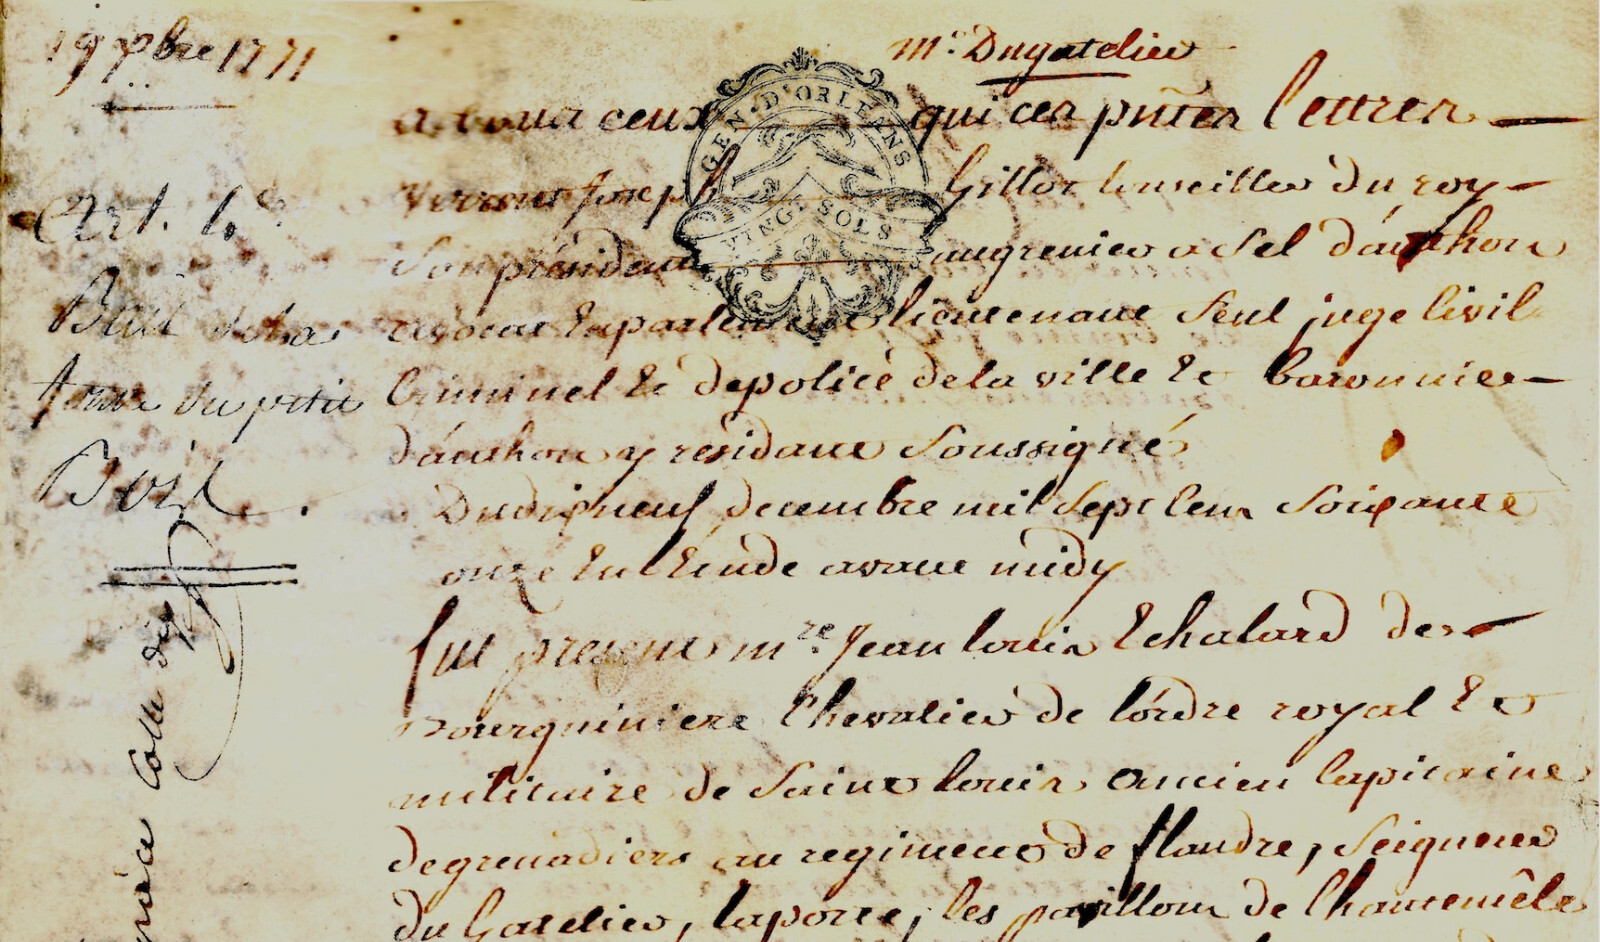 19 xbre 1771
Mr Dugatelier
a tous ceux qui ces pntes lettres
verront Joseph Gillot Conseiller du roy
Son présidant au grenier a Sel d'authon
avocat En parlement lieutenant Seul juge Civil
Criminel Et de police de la ville Et baronnie
d'authon y residant Soussigné
Du dix neuf decembre mil Sept Cent Soixante
onze En l'Etude avant midy
fut present mre Jean louis Echalard de
Bourguiniere Chevalier de l'ordre royal Et
militaire de Saint louis ancien Capitaine
de grenadiers au regiment de flandre, Seigneur
du Gatelier, laporte, les pavillons de Chantemêle
Art. 1er
Bail de la
ferme du petit
Bois.
GEN. D'ORLEANS
VING. SOLS